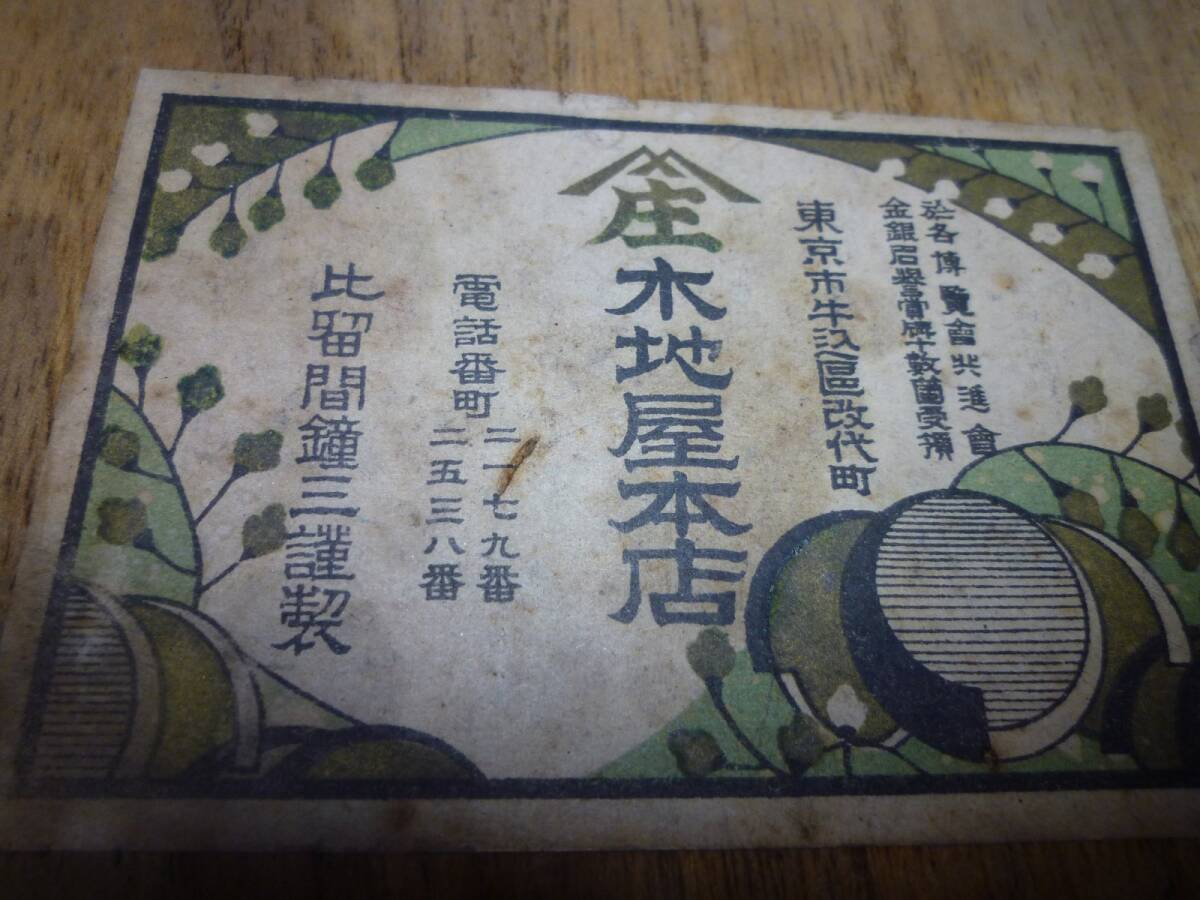 於各博覽會共進會
金銀名譽賞牌十數箇受領
東京市牛込區改代町
庄
木地屋本店
電話番町
二一七九番
二五三八番
比留間鐘三謹製